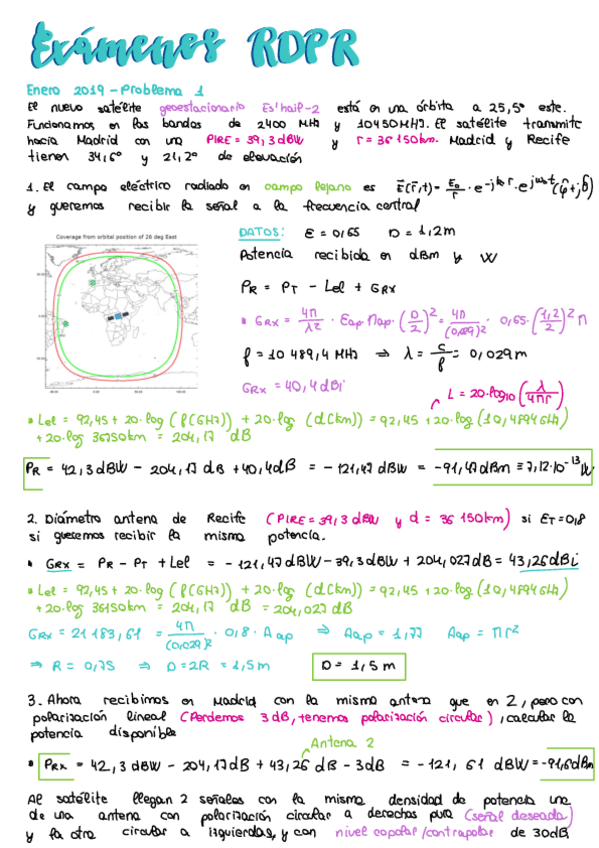 Exámenes RDPR
Enero 2019 - Problema 1
El nuevo satélite geoestacionario Es'hail-2 está en una órbita a 25,5° este.
Funcionamos en las bandas de 2400 MHz y 10450MHz. El satélite transmite
hacia Madrid con una PIRE = 39,3 dBW y r = 36 150km. Madrid y Recife
tienen 34,6° y 21,2° de elevación
1. El campo eléctrico radiado en campo lejano es E(r,t) = E₀/r · e^-jk₀r · e^jω₀t (φ̂ + jθ̂)
y queremos recibir la señal a la frecuencia central
Coverage from orbital position of 26 deg East
DATOS: E = 0,65 D = 1,2m
Potencia recibida en dBm y W
PR = PT - Lel + GRX
• GRX = 4π/λ² · Eap · Πap · (D/2)² = 4π/(0,029)² · 0,65 · (1,2/2)² π
f = 10 489,4 MHz ⇒ λ = c/f = 0,029 m
GRX = 40,4 dBi
L = 20·log10 (λ/4πr)
• Lel = 92,45 + 20·log (f(GHz)) + 20·log (d(km)) = 92,45 + 20·log (10,4894GHz)
+ 20·log 36150km = 204,17 dB
PR = 42,3 dBW - 204,17 dB + 40,4dB = -121,47 dBW = -91,47dBm ≡ 7,12·10^-13 W
2. Diámetro antena de Recife (PIRE = 39,3 dBW y d = 36 150km) si ET = 0,8
si queremos recibir la misma potencia.
• GRX = PR - PT + Lel = -121,47 dBW - 39,3 dBW + 204,027 dB = 43,26 dBi
• Lel = 92,45 + 20·log (f(GHz)) + 20·log (d(km)) = 92,45 + 20·log (10,4894 GHz)
+ 20·log 36150km = 204,17 dB = 204,027 dB
GRX = 21 183,61 = 4π/(0,029)² · 0,8 · Aap ⇒ Aap = 1,77 Aap = πr²
⇒ R = 0,75 ⇒ D = 2R = 1,5 m D = 1,5 m
3. Ahora recibimos en Madrid con la misma antena que en 2, pero con
polarización lineal (Perdemos 3 dB, tenemos polarización circular), calcular la
potencia disponible
Antena 2
• PRX = 42,3 dBW - 204,17dB + 43,26 dB - 3dB = -121,61 dBW = -91,6dBm
Al satélite llegan 2 señales con la misma densidad de potencia una
de una antena con polarización circular a derechas pura (señal deseada)
y la otra circular a izquierdas, y con nivel copolar/contrapolar de 30dB,